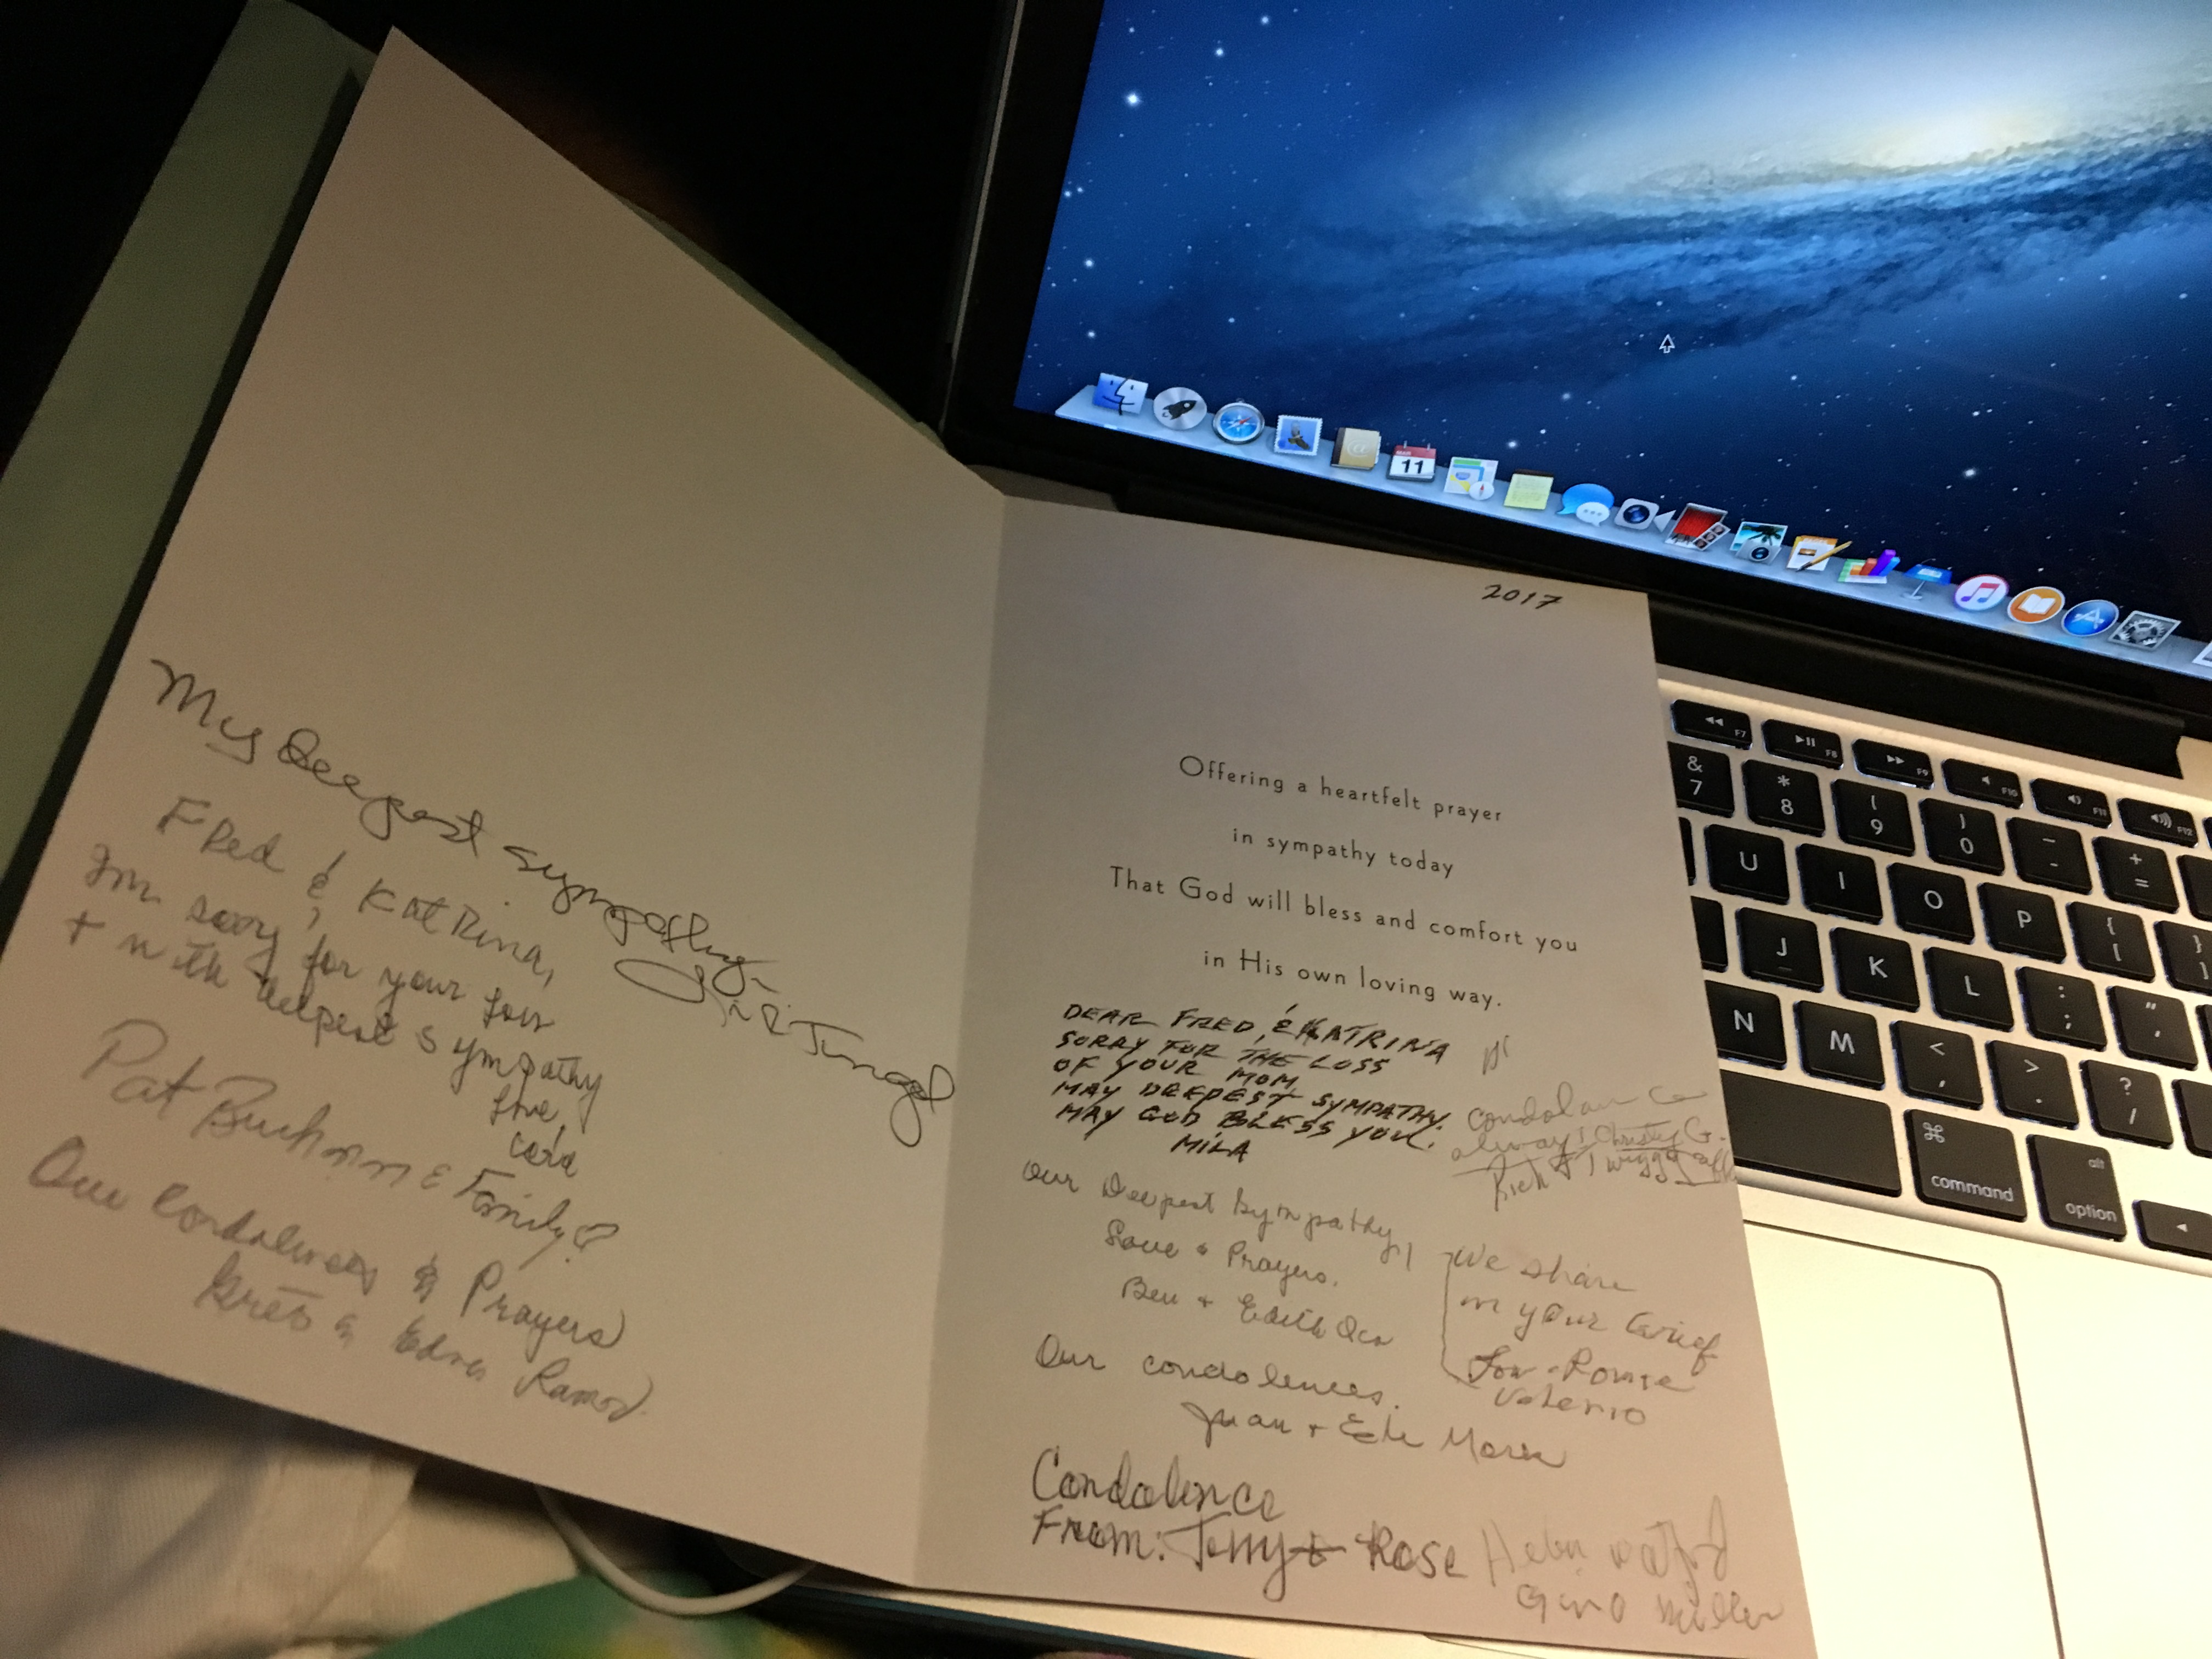 My Deepest sympathy
Fred & Katrina,
I'm sorry for your loss
+ with deepest sympathy
Love,
Pat & Family
Our Condolences & Prayers
& Edna Ramos
2017
Offering a heartfelt prayer
in sympathy today
That God will bless and comfort you
in His own loving way.
DEAR FRED, & KATRINA
SORRY FOR THE LOSS
OF YOUR MOM,
MAY DEEPEST SYMPATHY.
MAY GOD BLESS YOU.
MILA
Christy G.
Rich &
Our Deepest Sympathy,
Love & Prayers.
Ben + Edith
We share
in your Grief
Valerio
Our condolences.
Juan +
Condolence
From: Terry & Rose
Gino Miller
MAR
11
F7
F8
F9
F10
F11
F12
& 7
* 8
( 9
) 0
_ -
+ =
U
I
O
P
{ [
} ]
J
K
L
: ;
" '
N
M
< ,
> .
? /
⌘
command
alt
option